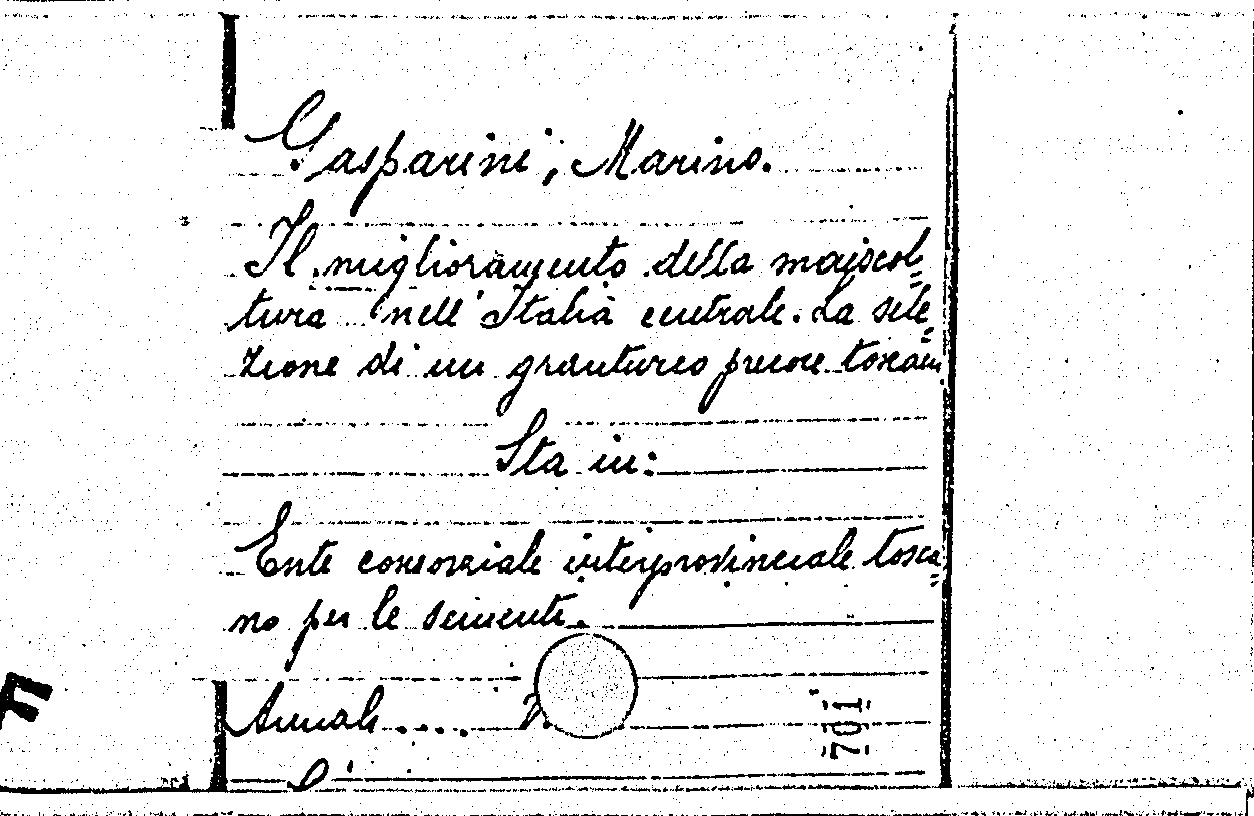 Gasparini, Marino.
Il miglioramento della maiscol=
tura nell'Italia centrale. La sele=
zione di un granturco precoce toscano
Sta in:
Ente consorziale interprovinciale tosca=
no per le sementi.
Annali....
701
F